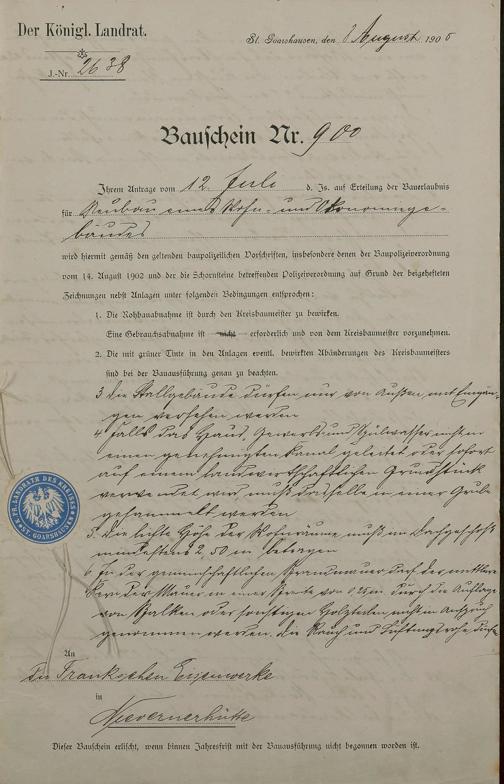 Der Königl. Landrat.
St. Goarshausen, den 8 August 1906
J.-Nr. 2638
Bauschein Nr. 900
Ihrem Antrage vom 12. Juli d. Js. auf Erteilung der Bauerlaubnis
für Neubau eines Wohn- und Ökonomiege-
bäudes
wird hiermit gemäß den geltenden baupolizeilichen Vorschriften, insbesondere denen der Baupolizeiverordnung
vom 14. August 1902 und der die Schornsteine betreffenden Polizeiverordnung auf Grund der beigehefteten
Zeichnungen nebst Anlagen unter folgenden Bedingungen entsprochen:
1. Die Rohbauabnahme ist durch den Kreisbaumeister zu bewirken.
Eine Gebrauchsabnahme ist nicht erforderlich und von dem Kreisbaumeister vorzunehmen.
2. Die mit grüner Tinte in den Anlagen eventl. bewirkten Abänderungen des Kreisbaumeisters
sind bei der Bauausführung genau zu beachten.
3 Die Stallgebäude dürfen nur von Außen mit Eingän-
gen versehen werden
4 Falls das Haus, Gewerbe und Spülwasser nicht in
einen genehmigten Kanal geleitet oder sofort
auf einem landwirtschaftlichen Grundstück
verwendet wird, muß dasselbe in einer Grube
gesammelt werden
5. Die lichte Höhe der Wohnräume muß im Dachgeschoß
mindestens 2,50 m betragen
6 In der gemeinschaftlichen Brandmauer darf der mittlere
Kern der Mauer in einer Breite von 0,25 m durch die Auflage
von Balken oder sonstigen Holzteilen nicht in Anspruch
genommen werden. Die Rauch und Lüftungsrohre
KGL. PR. LANDRATH DES KREISES
ST. GOARSHAUSEN
An
Die Frankschen Eisenwerke
in
Nievernerhütte
Dieser Bauschein erlischt, wenn binnen Jahresfrist mit der Bauausführung nicht begonnen worden ist.